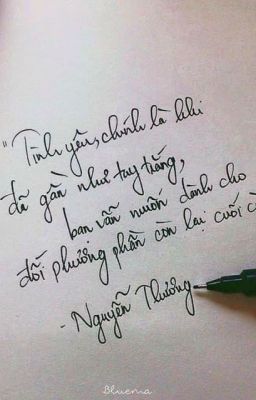 "Tình yêu, chính là khi
đã gần như tay trắng,
bạn vẫn muốn dành cho
đối phương phần còn lại cuối c
- Nguyễn Thương
Bluema